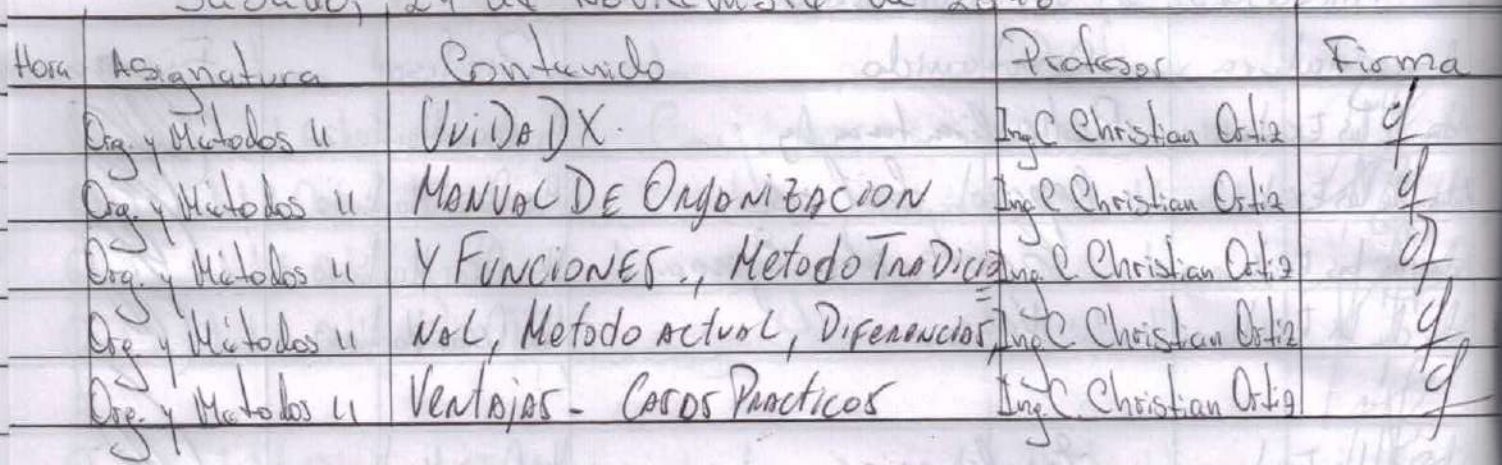 Sabado, 24 de Noviembre de
Hora Asignatura Contenido Profesor Firma
Org. y Métodos II UniDaD X. Ing. C. Christian Ortiz
Org. y Métodos II MANUAL DE ORGANIZACION Ing. C. Christian Ortiz
Org. y Métodos II Y FUNCIONES, Metodo TRADICIO Ing. C. Christian Ortiz
Org. y Métodos II NAL, Metodo Actual, DIFERENCIAS, Ing. C. Christian Ortiz
Org. y Métodos II VENTAJAS - CASOS PRACTICOS Ing. C. Christian Ortiz